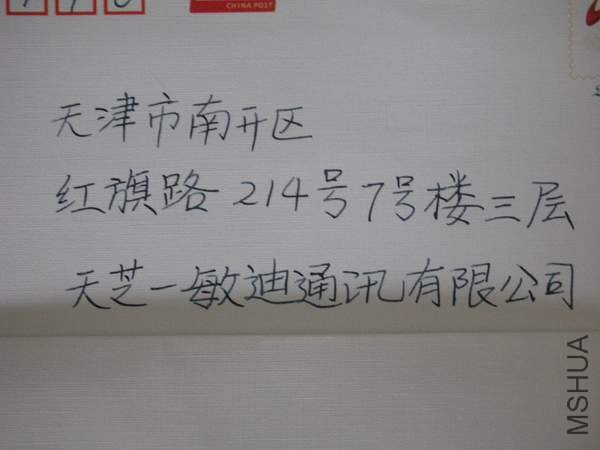 CHINA POST
天津市南开区
红旗路214号7号楼三层
天芝一敏迪通讯有限公司
MSHUA